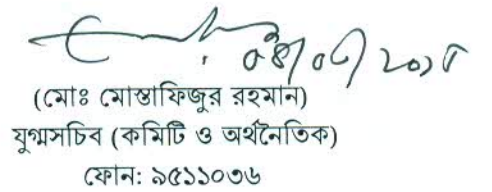 (মোঃ মোস্তাফিজুর রহমান)
যুগ্মসচিব (কমিটি ও অর্থনৈতিক)
ফোন: ৯৫১১০৩৬